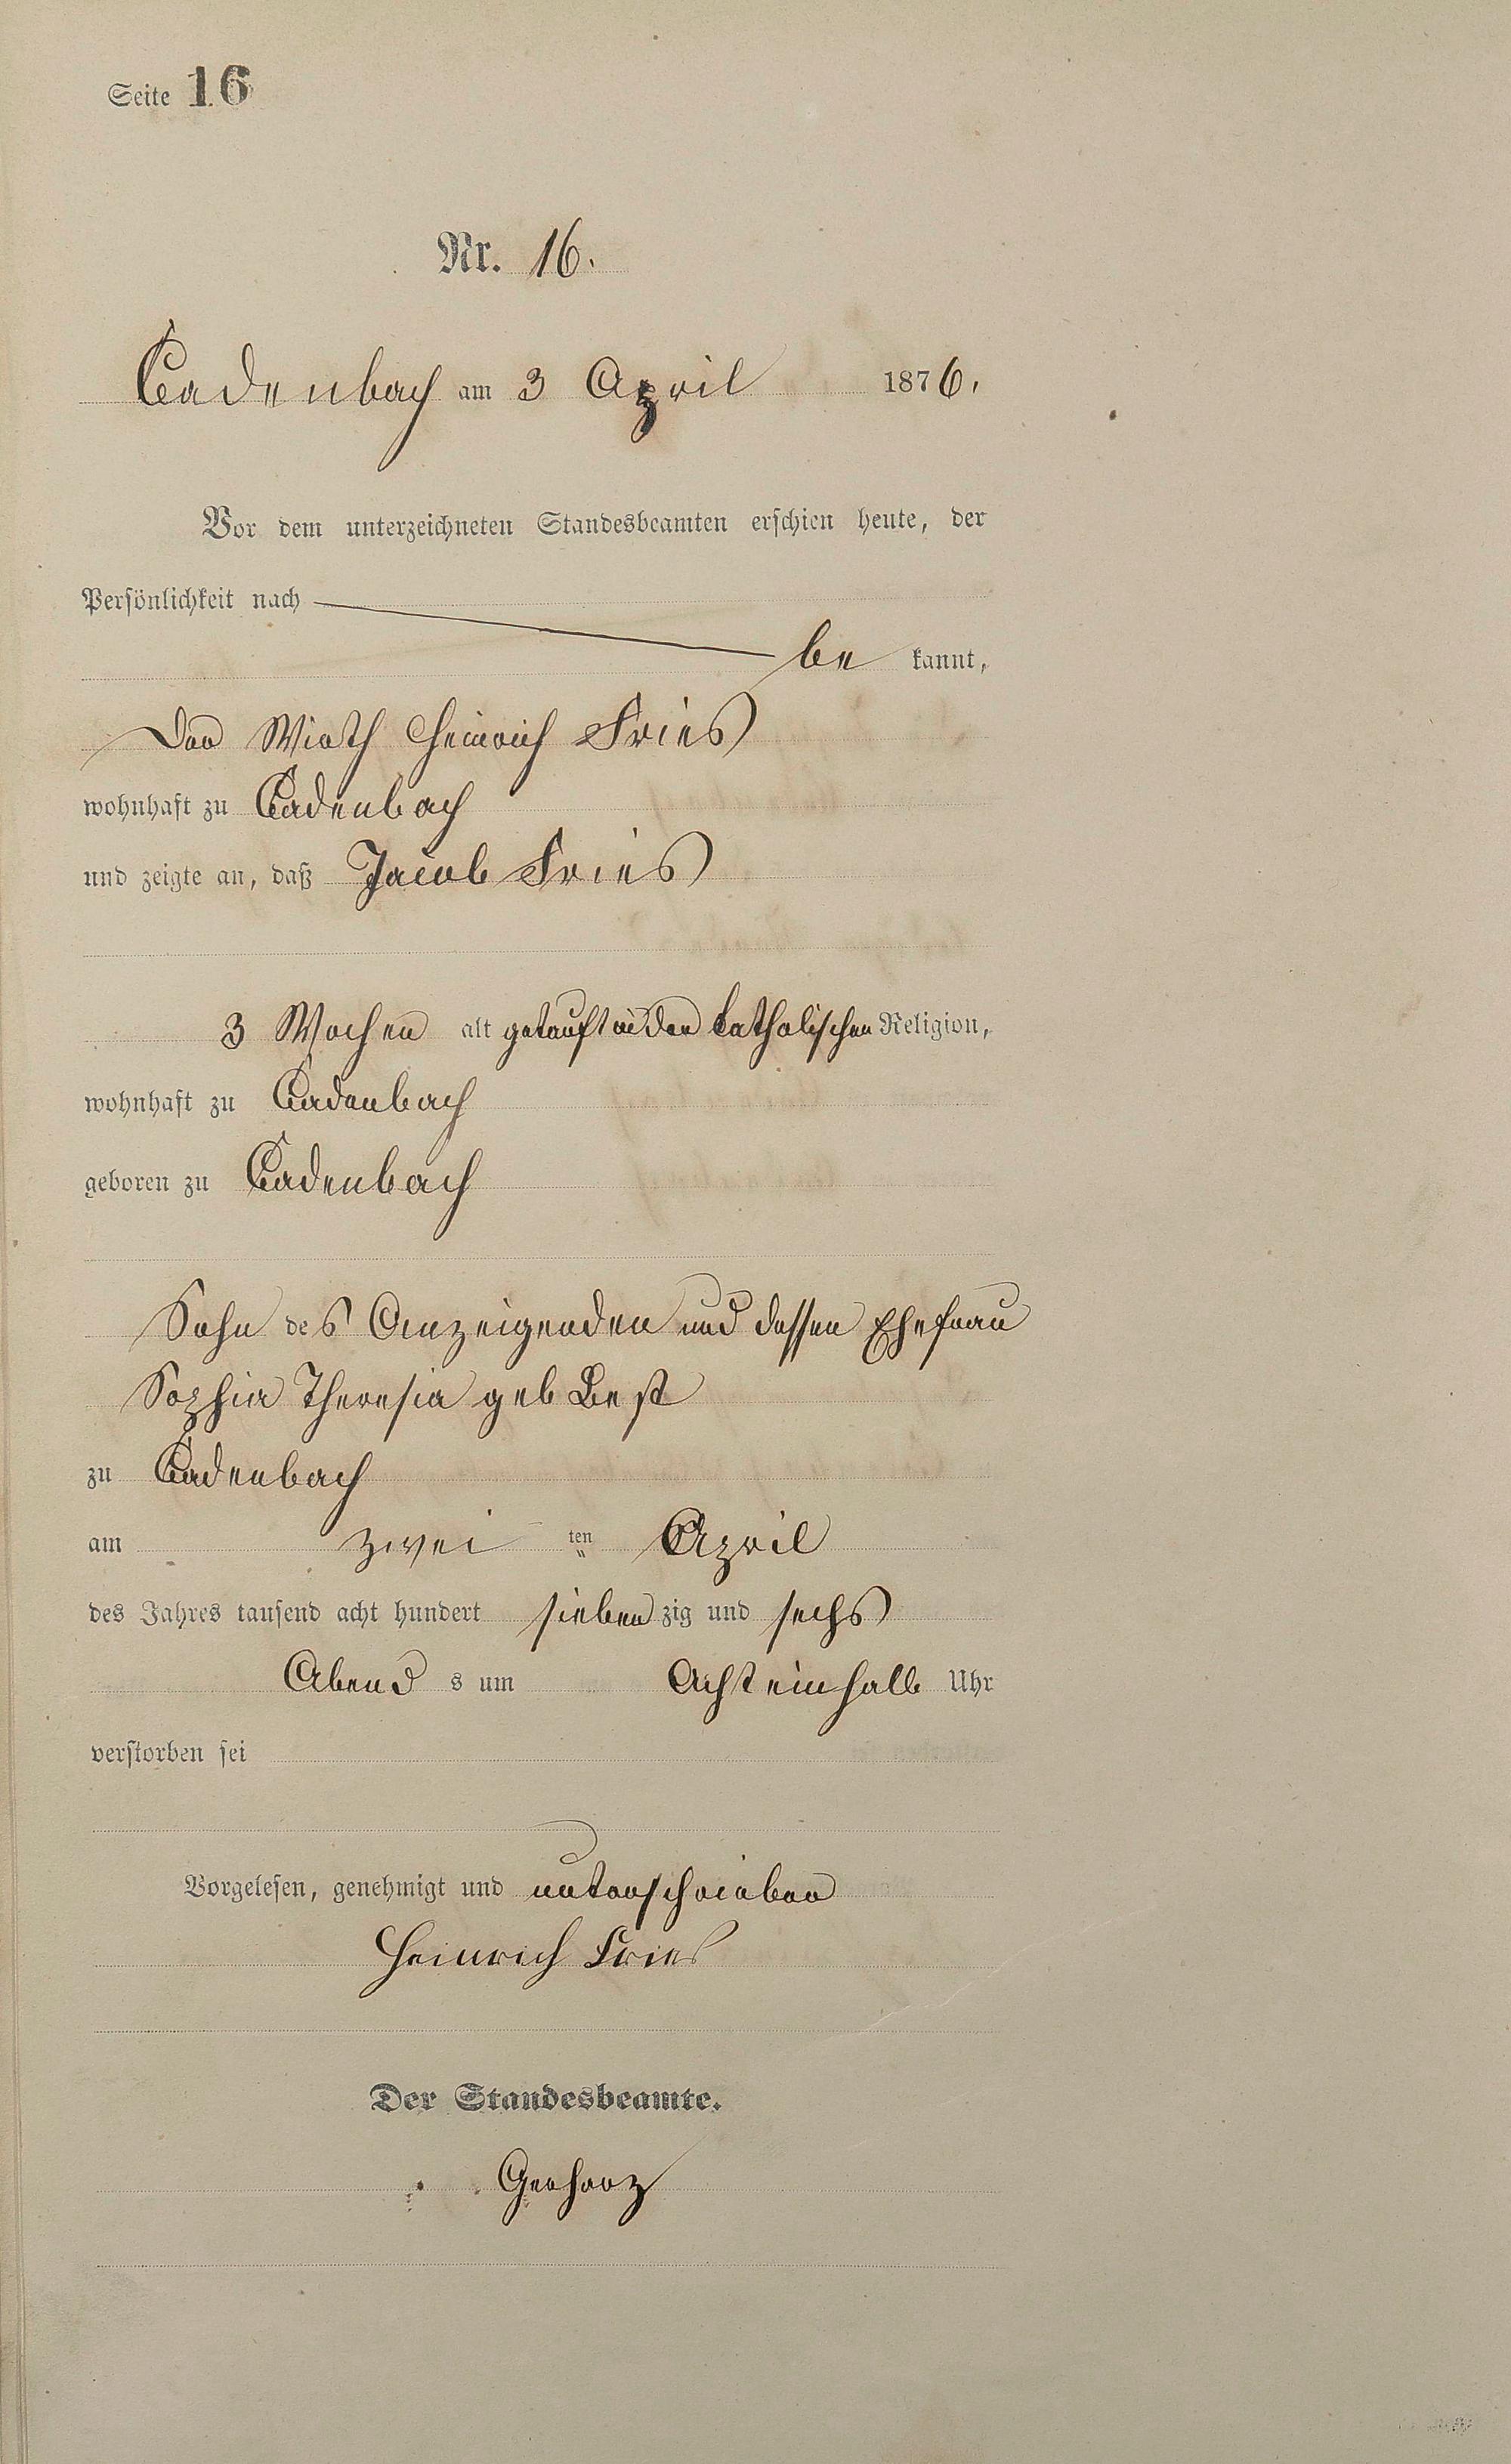 Seite 16
Nr. 16.
Cadenbach am 3 April 1876.
Vor dem unterzeichneten Standesbeamten erschien heute, der
Persönlichkeit nach
be kannt,
Der Wirth Heinrich Fries
wohnhaft zu Cadenbach
und zeigte an, daß Jacob Fries
3 Wochen alt getauft in der katholischen Religion,
wohnhaft zu Cadenbach
geboren zu Cadenbach
Sohn des Anzeigenden und dessen Ehefrau
Sophia Theresia geb Best
zu Cadenbach
am zwei ten April
des Jahres tausend acht hundert sieben zig und sechs
Abend s um Acht einhalb Uhr
verstorben sei
Vorgelesen, genehmigt und unterschrieben
Heinrich Fries
Der Standesbeamte.
Gerharz